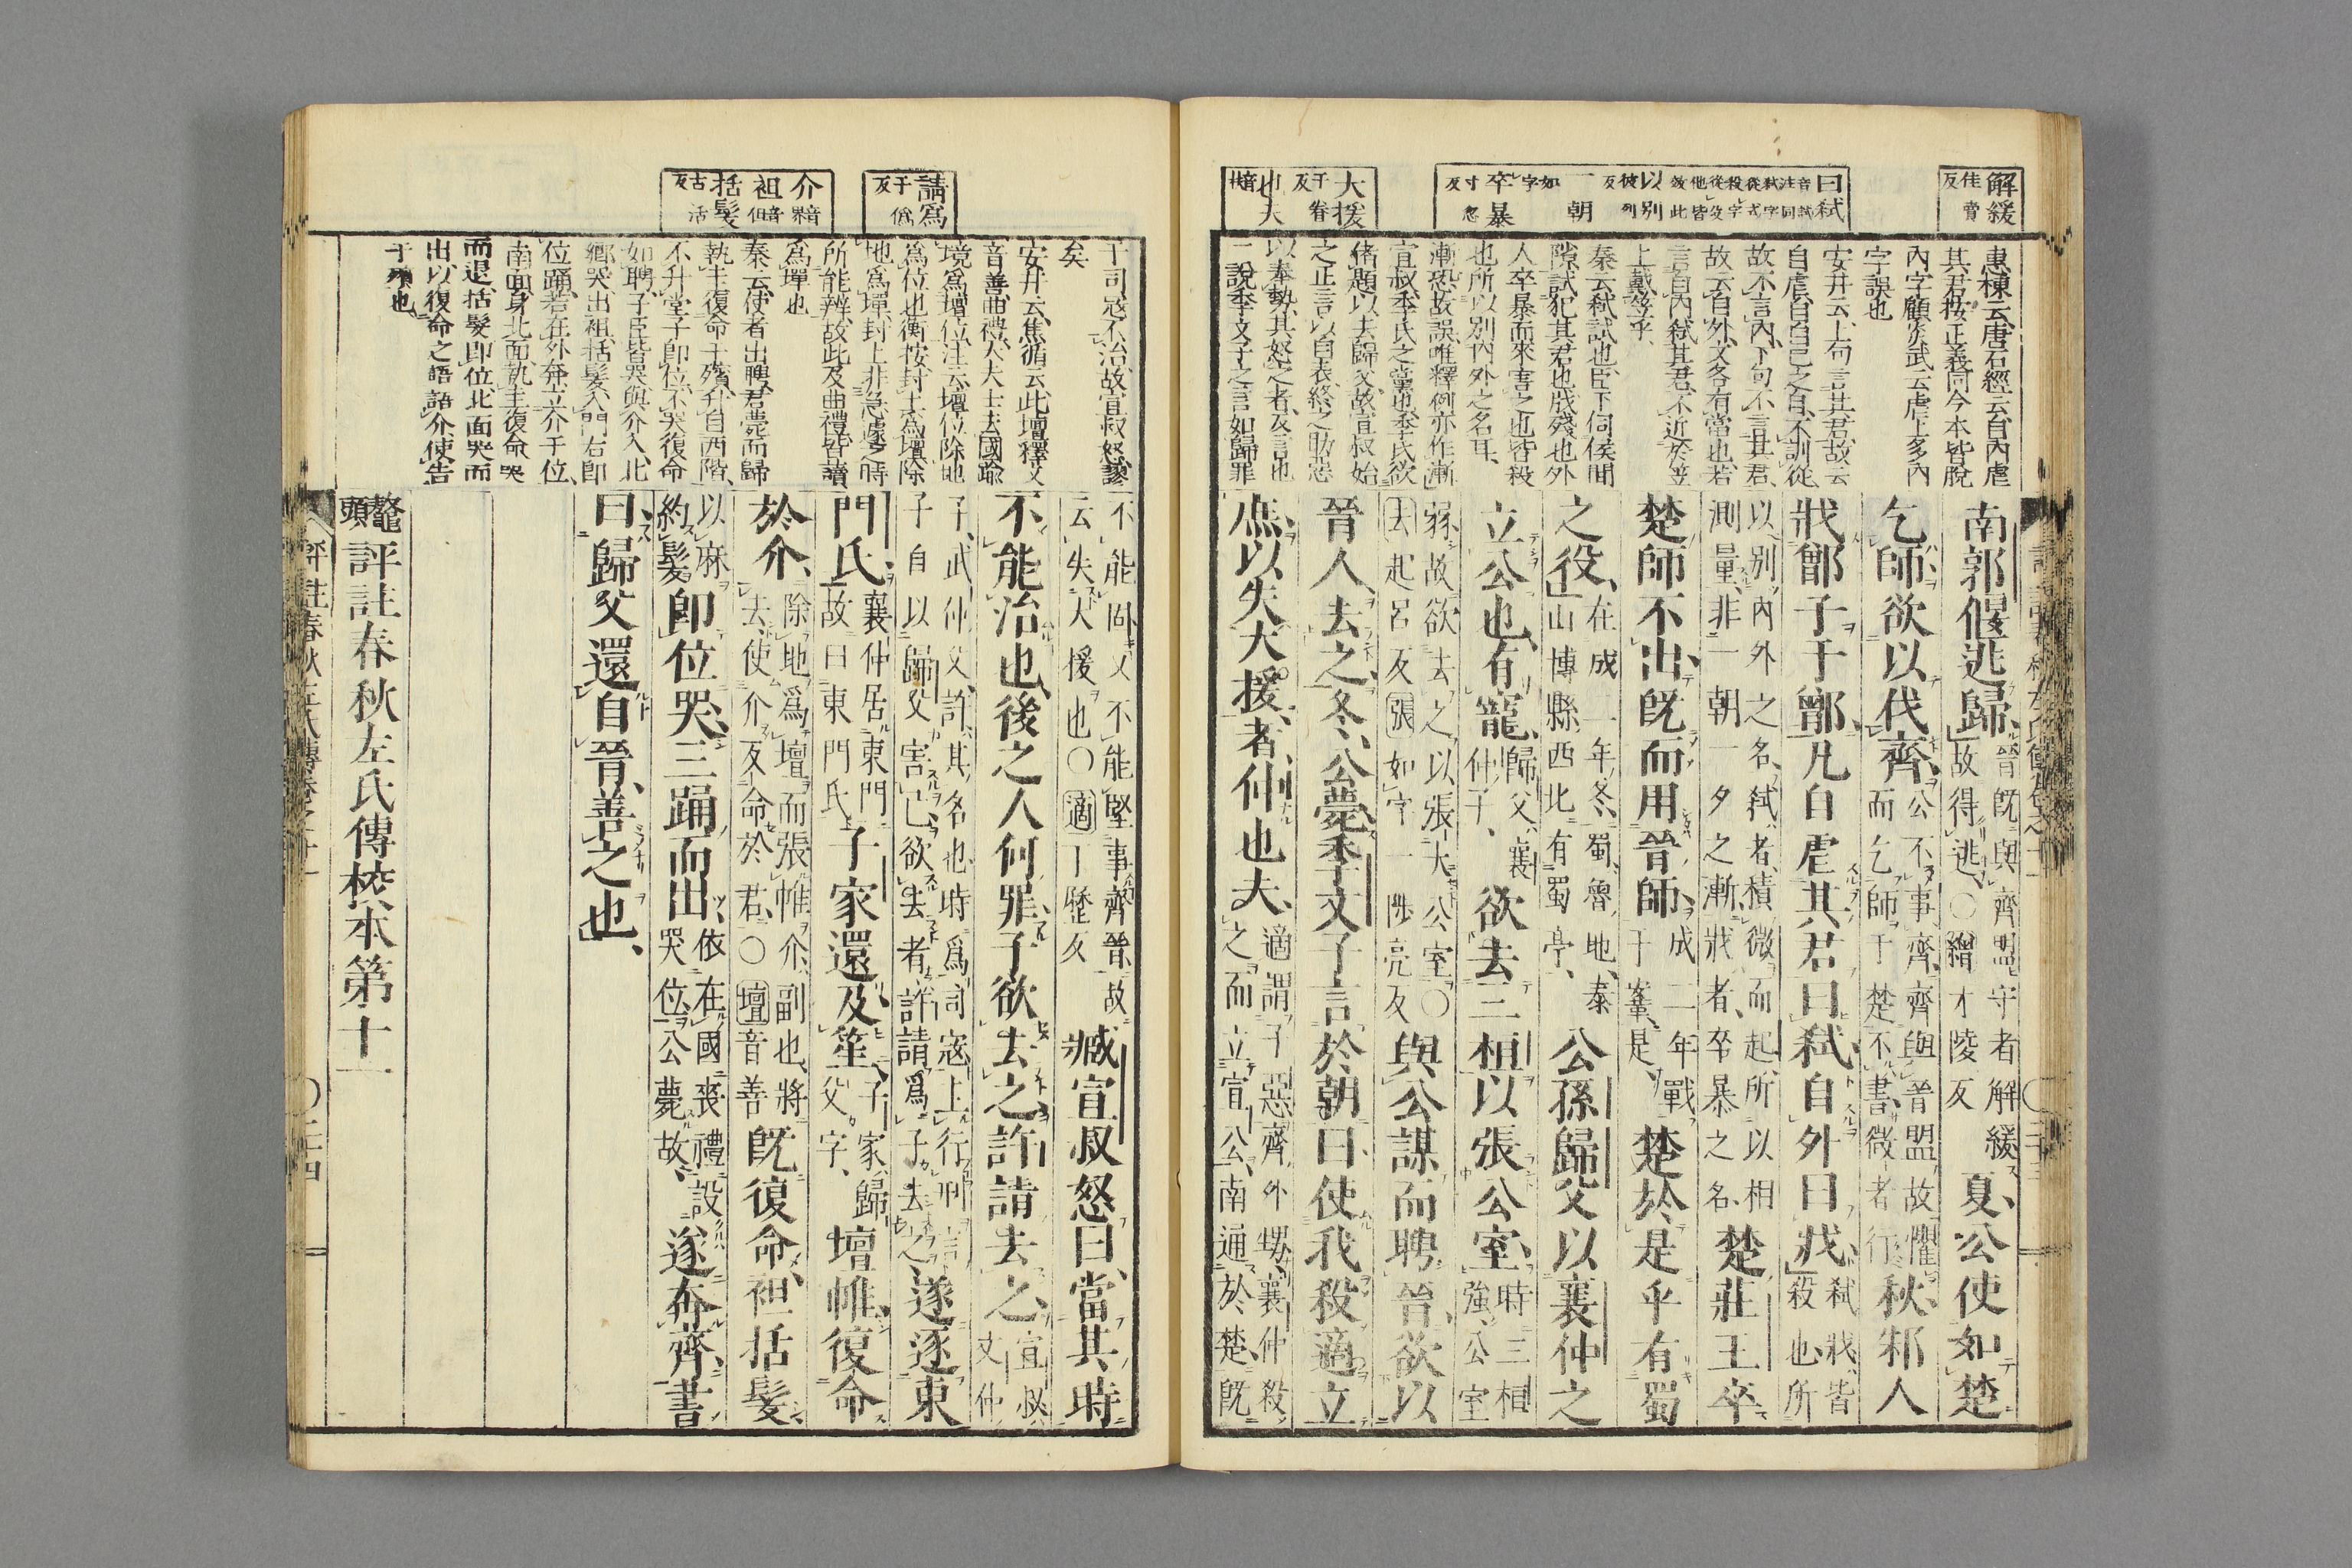 解緩 佳賣反
曰弒 音試注同弒字從式殺字從殳他皆放此
以別 彼列反
一朝 如字
卒暴 寸忽反
大援 于眷反
也夫 音扶
惠棟云唐石經云自內虐
其君按正義同今本皆脫
內字顧炎武云虐上多內
字誤也
安井云上句言其君故云
自虐自自己之自不訓從
故不言內下句不言其君
故云自外文各有當也若
言自內弒其君不近於笠
上戴笠乎
秦云弒試也臣下伺侯間
隙試犯其君也戕殘也外
人卒暴而來害之也皆殺
也所以別內外之名耳
漸恐故誤唯釋例亦作漸
宣叔季氏之黨也季氏欲
偖題以去歸父故宣叔始
之正言以自表終之助惡
以奉勢其怒之者反言也
一說季文子之言如歸罪
南郭偃逃歸晉既與齊盟守者解緩故得逃○繒才陵反夏公使如楚
乞師欲以伐齊公不事齊齊與晉盟故懼而乞師于楚不書微者行秋邾人
戕鄫子于鄫凡自虐其君曰弒自外曰戕弒戕皆殺也所
以別內外之名弒者積微而起所以相測量非一朝一夕之漸戕者卒暴之名楚莊王卒
楚師不出既而用晉師成二年戰于鞌是楚於是乎有蜀
之役在成二年冬蜀魯地泰山博縣西北有蜀亭公孫歸父以襄仲之
立公也有寵歸父襄仲子欲去三桓以張公室時三桓強公室
弱故欲去之以張大公室○去起呂反張如字一陟亮反與公謀而聘晉欲以
晉人去之冬公薨季文子言於朝曰使我殺適立
庶以失大援者仲也夫適謂子惡齊外甥襄仲殺之而立宣公南通於楚既
請爲 于僞反
介 音界
袒 音但
括髮 古活反
于司寇不治故宣叔怒讓
矣
安井云焦循云此壇釋文
音善曲禮大夫士去國踰
境爲壇位注云壇位除地
爲位也衡按封土爲壇除
地爲墠封土非急遽之時
所能辨故此及曲禮皆讀
爲墠也
秦云使者出聘君薨而歸
執圭復命于殯升自西階
不升堂子即位不哭復命
如聘子臣皆哭與介入北
鄉哭出袒括髮入門右即
位踊若在外奔立介于位
南面身北面執圭復命哭
而退括髮即位北面哭而
出以復命之語語介使告
于殯也
不能固又不能堅事齊晉故云失大援也○適丁歷反臧宣叔怒曰當其時
不能治也後之人何罪子欲去之許請去之宣叔文仲
子武仲父許其名也時爲司寇主行刑言子自以歸父害己欲去者許請爲子去之遂逐東
門氏襄仲居東門故曰東門氏子家還及笙子家歸父字壇帷復命
於介除地爲壇而張帷介副也將去使介反命於君○壇音善既復命袒括髮
以麻約髮即位哭三踊而出依在國喪禮設哭位公薨故遂奔齊書
曰歸父還自晉善之也
鼇頭評註春秋左氏傳校本第十一
評註春秋左氏傳卷之十一
○三十四